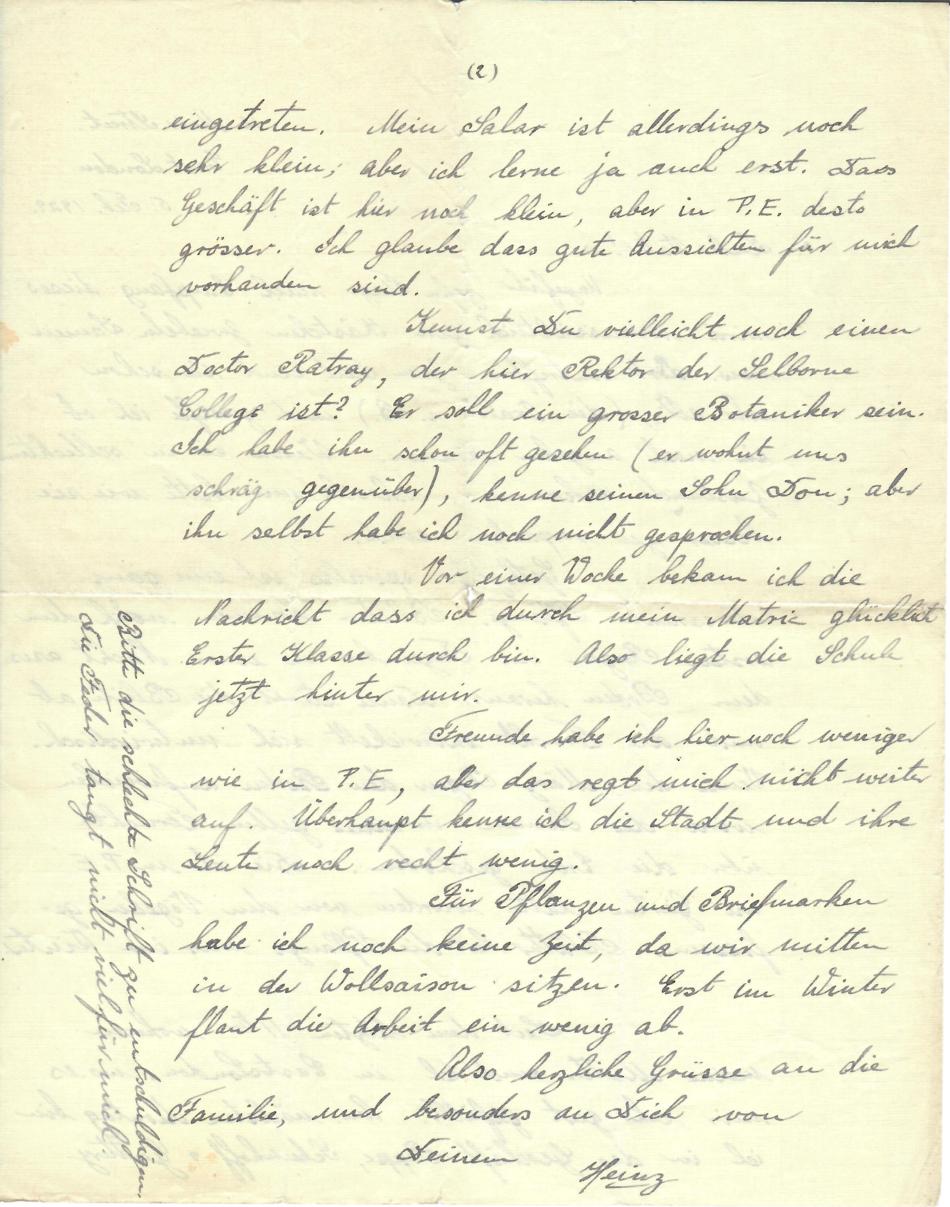 (2)
eingetreten. Mein Salar ist allerdings noch
sehr klein; aber ich lerne ja auch erst. Dass
Geschäft ist hier noch klein, aber in P.E. desto
grösser. Ich glaube dass gute Aussichten für mich
vorhanden sind.
Kennst Du vielleicht noch einen
Doctor Ratray, der hier Rektor der Selborne
College ist? Er soll ein grosser Botaniker sein.
Ich habe ihn schon oft gesehen (er wohnt uns
schräg gegenüber), kenne seinen Sohn Don; aber
ihn selbst habe ich noch nicht gesprochen.
Vor einer Woche bekam ich die
Nachricht dass ich durch mein Matric glücklich
Erster Klasse durch bin. Also liegt die Schule
jetzt hinter mir.
Freunde habe ich hier noch weniger
wie in P.E, aber das regt mich nicht weiter
auf. Überhaupt kenne ich die Stadt und ihre
Leute noch recht wenig.
Für Pflanzen und Briefmarken
habe ich noch keine Zeit, da wir mitten
in der Wollsaison sitzen. Erst im Winter
flaut die Arbeit ein wenig ab.
Also herzliche Grüsse an die
Familie, und besonders an Dich von
Deinem
Heinz
Bitte die schlechte Schrift zu entschuldigen.
Die Feder taugt nicht viel für mich.